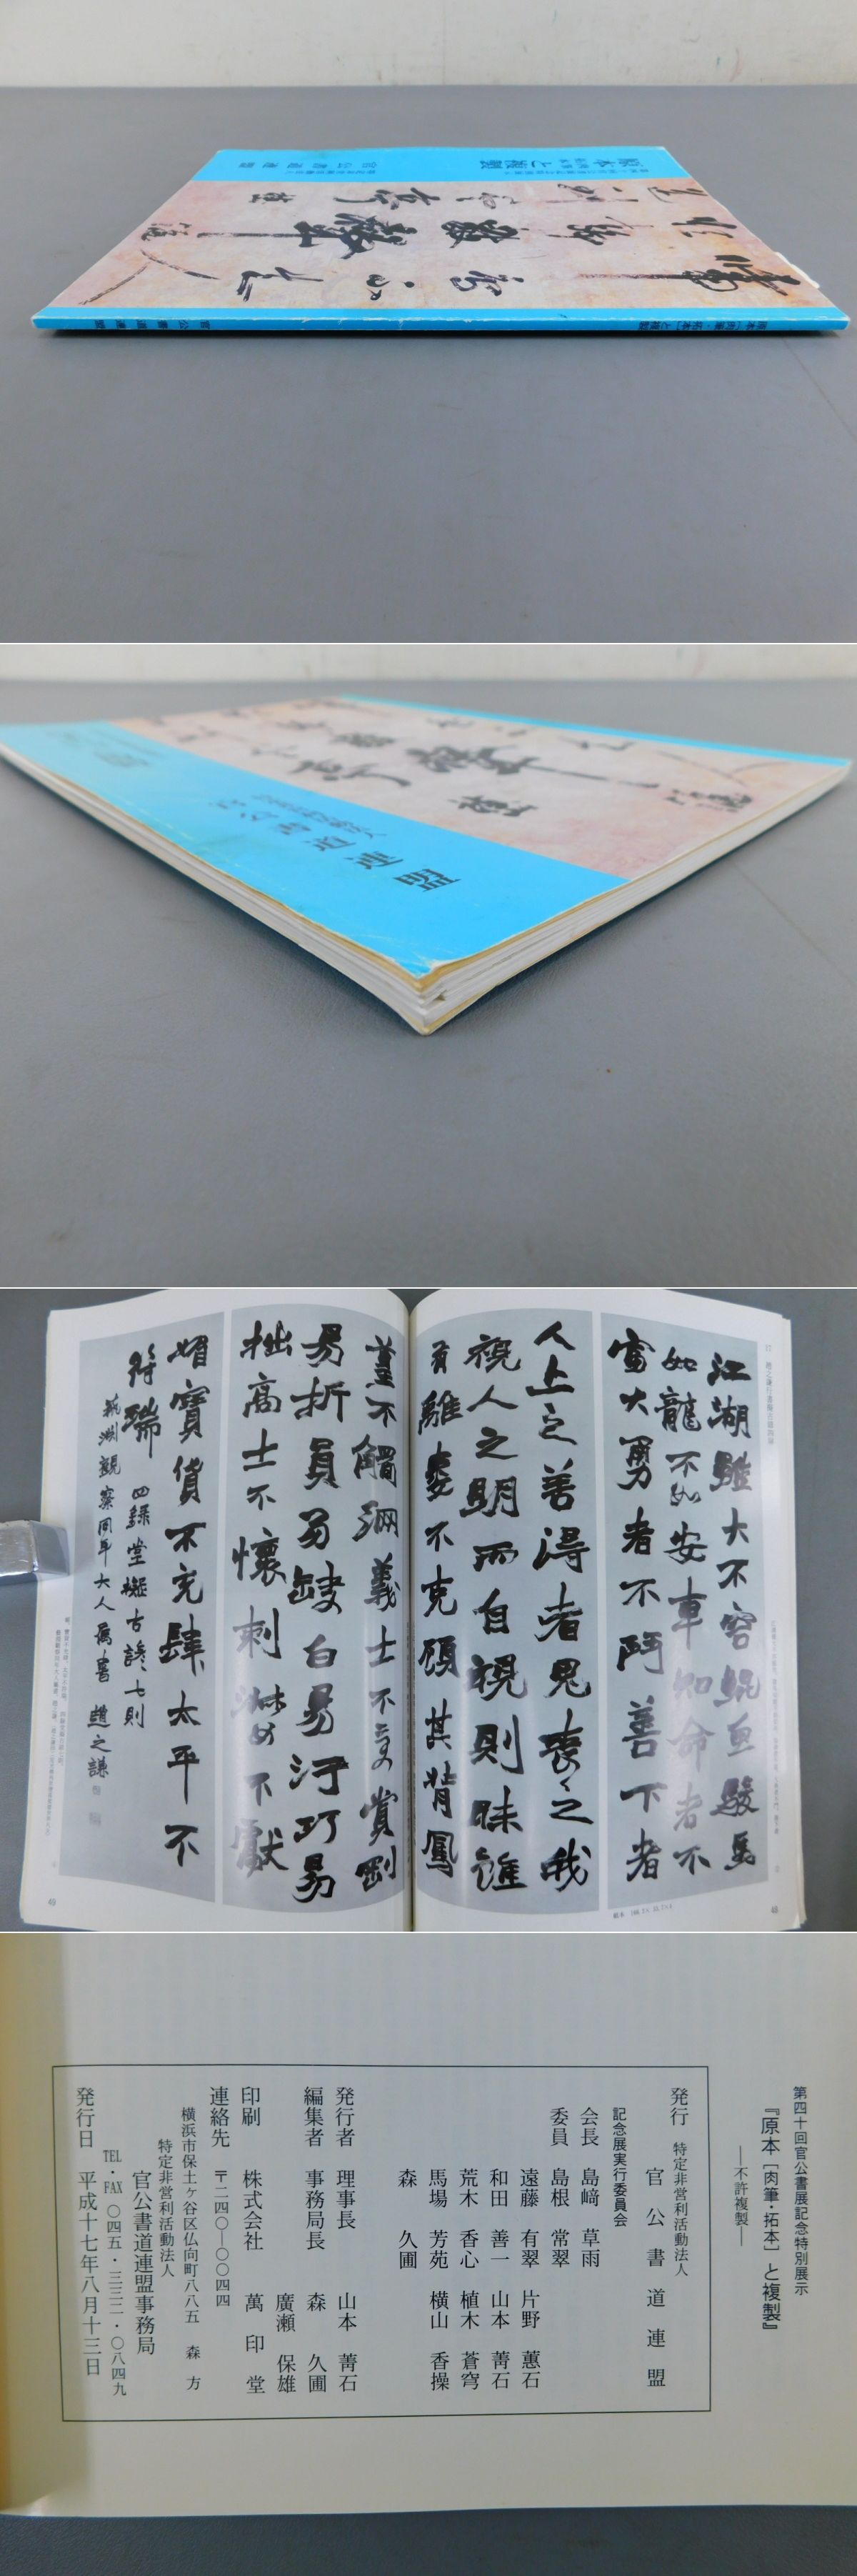 原本
と複製
官公書道連盟
官公書道連盟
官公書道連盟
江湖雖大不容鯤魚駿馬
如龍不如安車知命者不
富大勇者不鬥善下者
人上之善得者忌喪之哦
視人之明而自視則昧雖
有離婁不克顧其背鳳
蓳不觸網義士不受賞剛
易折員易缺白易汙巧易
拙高士不懷刺淑女不獻
媚寶貨不充肆太平不
符瑞 四錄堂擬古諺七則
蓺湖觀察同年大人屬書 趙之謙
49
48
第四十回官公書展記念特別展示
『原本［肉筆・拓本］と複製』
―不許複製―
発行 特定非営利活動法人
官公書道連盟
記念展実行委員会
会長 島﨑 草雨
委員 島根 常翠
遠藤 有翠 片野 蕙石
和田 善一 山本 菁石
荒木 香心 植木 蒼穹
馬場 芳苑 横山 香操
森 久圃
発行者 理事長 山本 菁石
編集者 事務局長 森 久圃
廣瀬 保雄
印刷 株式会社 萬印堂
連絡先 〒二四〇―〇〇四四
横浜市保土ヶ谷区仏向町八八五 森 方
特定非営利活動法人
官公書道連盟事務局
TEL・FAX 〇四五・三三二・〇八四九
発行日 平成十七年八月十三日